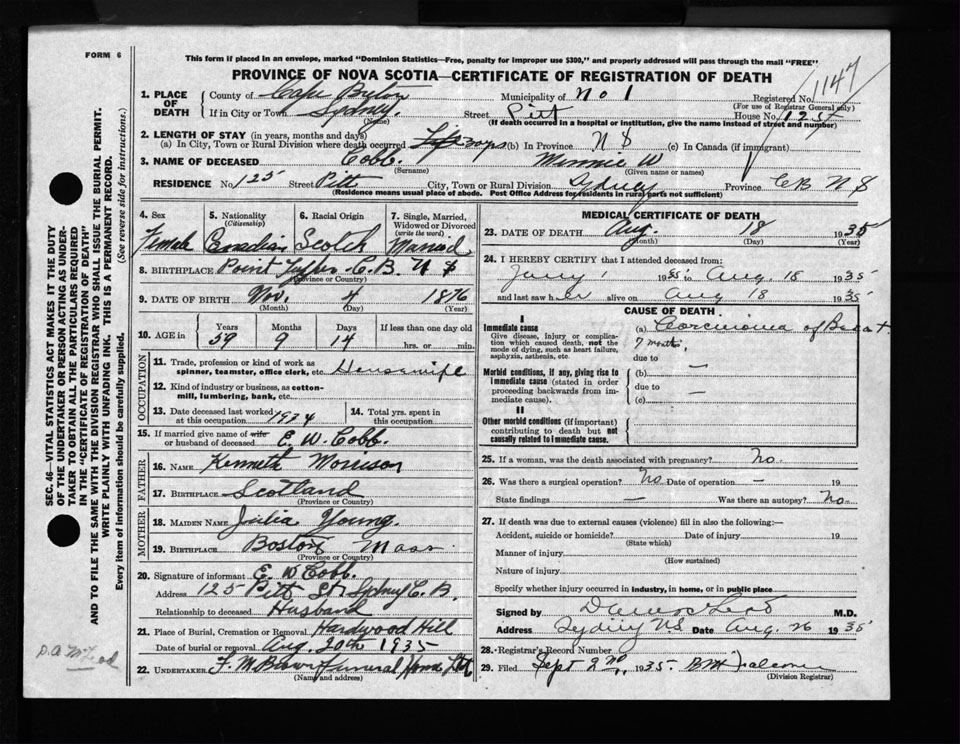 FORM 6
This form if placed in an envelope, marked "Dominion Statistics—Free, penalty for improper use $300," and properly addressed will pass through the mail "FREE"
PROVINCE OF NOVA SCOTIA—CERTIFICATE OF REGISTRATION OF DEATH
1147
1. PLACE OF DEATH County of Cape Breton Municipality of No 1 Registered No.
(For use of Registrar General only)
If in City or Town Sydney (Name) Street Pitt House No. 125
(If death occurred in a hospital or institution, give the name instead of street and number)
2. LENGTH OF STAY (in years, months and days)
(a) In City, Town or Rural Division where death occurred (b) In Province N S (c) In Canada (if immigrant)
3. NAME OF DECEASED Cobb. (Surname) Minnie W (Given name or names)
RESIDENCE No. 125 Street Pitt City, Town or Rural Division Sydney Province C B N S
(Residence means usual place of abode. Post Office Address for residents in rural parts not sufficient)
4. Sex 5. Nationality (Citizenship) 6. Racial Origin 7. Single, Married, Widowed or Divorced (write the word)
Female Canadian Scotch Married
8. BIRTHPLACE Point Tupper C. B. N S
(Province or Country)
9. DATE OF BIRTH Nov. 4 1876
(Month) (Day) (Year)
10. AGE in Years Months Days If less than one day old
59 9 14 hrs. or min.
OCCUPATION
11. Trade, profession or kind of work as spinner, teamster, office clerk, etc. Housewife
12. Kind of industry or business, as cotton-mill, lumbering, bank, etc.
13. Date deceased last worked at this occupation 1934 14. Total yrs. spent in this occupation
15. If married give name of wife or husband of deceased E. W. Cobb.
FATHER
16. NAME Kenneth Morrison
17. BIRTHPLACE Scotland
(Province or Country)
MOTHER
18. MAIDEN NAME Julia Young.
19. BIRTHPLACE Boston Mass
(Province or Country)
20. Signature of informant E. W Cobb.
Address 125 Pitt St Sydney C. B.
Relationship to deceased Husband
21. Place of Burial, Cremation or Removal Hardwood Hill
Date of burial or removal Aug. 20th 1935
22. UNDERTAKER F. M. Brown Funeral Home Ltd
(Name and address)
MEDICAL CERTIFICATE OF DEATH
23. DATE OF DEATH Aug. 18 1935
(Month) (Day) (Year)
24. I HEREBY CERTIFY that I attended deceased from:
1935 to Aug. 18 1935
and last saw her alive on Aug 18 1935
CAUSE OF DEATH
I
Immediate cause (a) Carcinoma of Breast
Give disease, injury or complication which caused death, not the mode of dying, such as heart failure, asphyxia, asthenia, etc.
7 months.
due to
Morbid conditions, if any, giving rise to immediate cause (stated in order proceeding backwards from immediate cause).
(b) —
due to
(c) —
II
Other morbid conditions (if important) contributing to death but not causally related to immediate cause.
25. If a woman, was the death associated with pregnancy? No.
26. Was there a surgical operation? No Date of operation — 19
State findings — Was there an autopsy? No
27. If death was due to external causes (violence) fill in also the following:—
Accident, suicide or homicide? Date of injury 19
(State which)
Manner of injury
(How sustained)
Nature of injury
Specify whether injury occurred in industry, in home, or in public place
Signed by M.D.
Address Sydney N.S. Date Aug. 26 1935
28. Registrar's Record Number
29. Filed Sept 2nd 1935
(Division Registrar)
SEC. 46—VITAL STATISTICS ACT MAKES IT THE DUTY
OF THE UNDERTAKER OR PERSON ACTING AS UNDER-
TAKER TO OBTAIN ALL THE PARTICULARS REQUIRED
IN THE "CERTIFICATE OF REGISTRATION OF DEATH"
AND TO FILE THE SAME WITH THE DIVISION REGISTRAR WHO SHALL ISSUE THE BURIAL PERMIT.
WRITE PLAINLY WITH UNFADING INK. THIS IS A PERMANENT RECORD.
Every item of information should be carefully supplied. (See reverse side for instructions.)